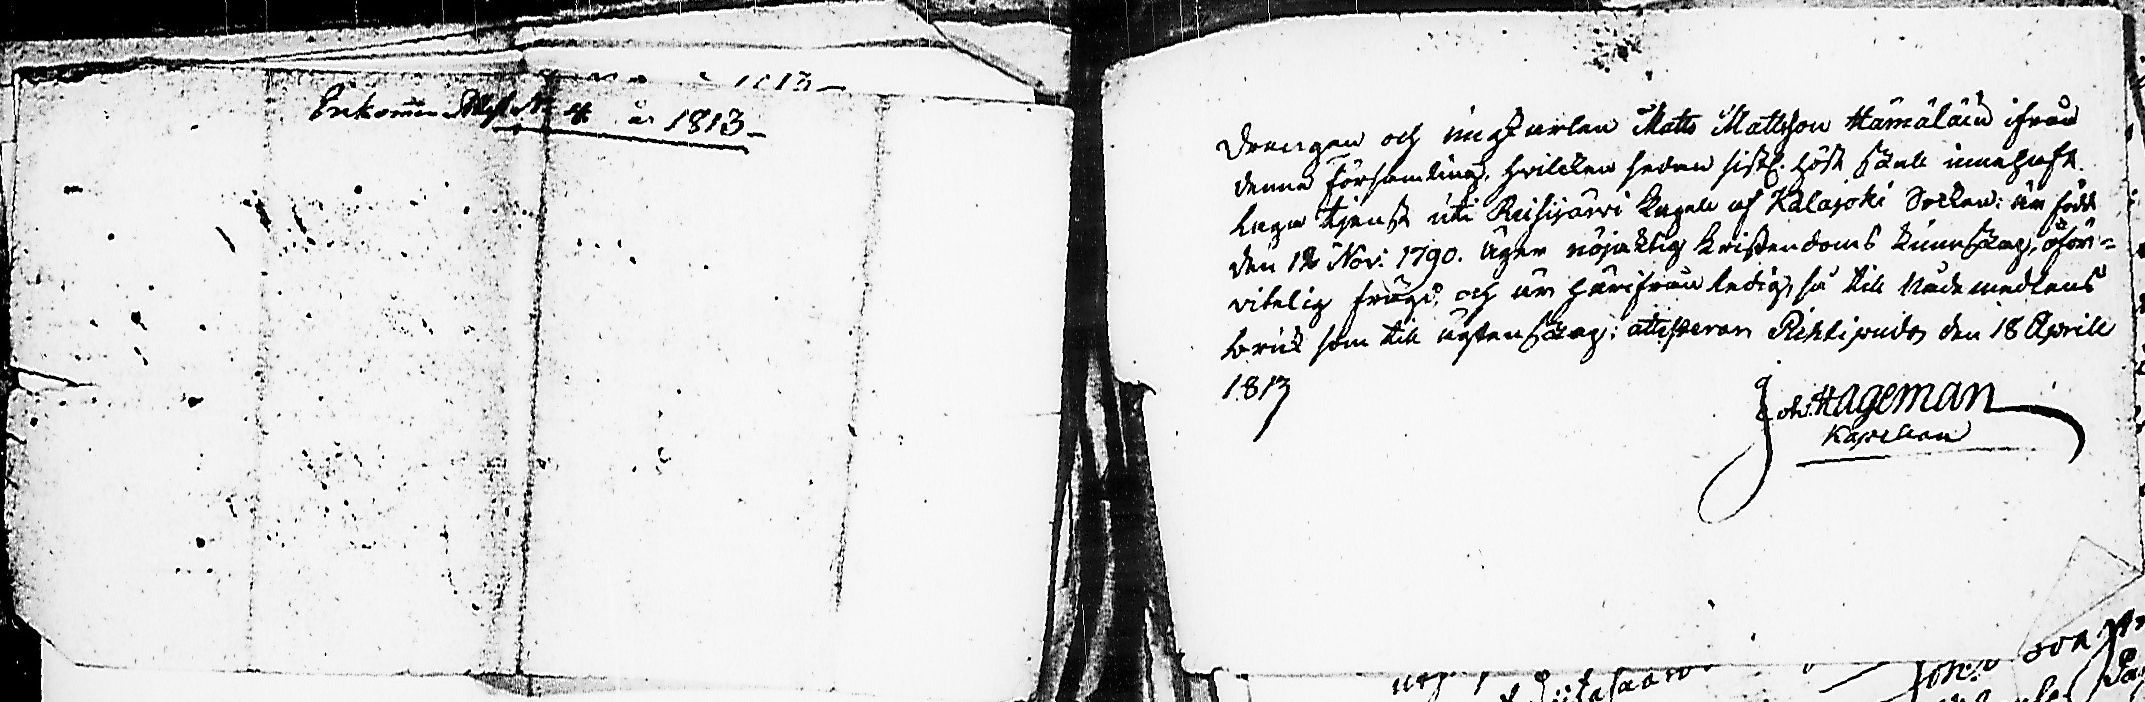 Enkommen Attest N: 4 år 1813
Drengen och ungkarlen Matts Mattsson Hämäläin ifrån
denna Församling, hvilcken sedan sistl. höst skall innehaft
laga tjenst uti Reisijärvi Capell af Kalajoki Socken: är född
den 12 Nov: 1790. Äger nöjaktig Kristendoms kunskap, oför=
vitelig frägd, och är härifrån ledig, så till Nådemedlens
bruk som till ägtenskap: attesterar Pihtipudas den 18 Aprill
1813
Joh: Hageman
Kapellan